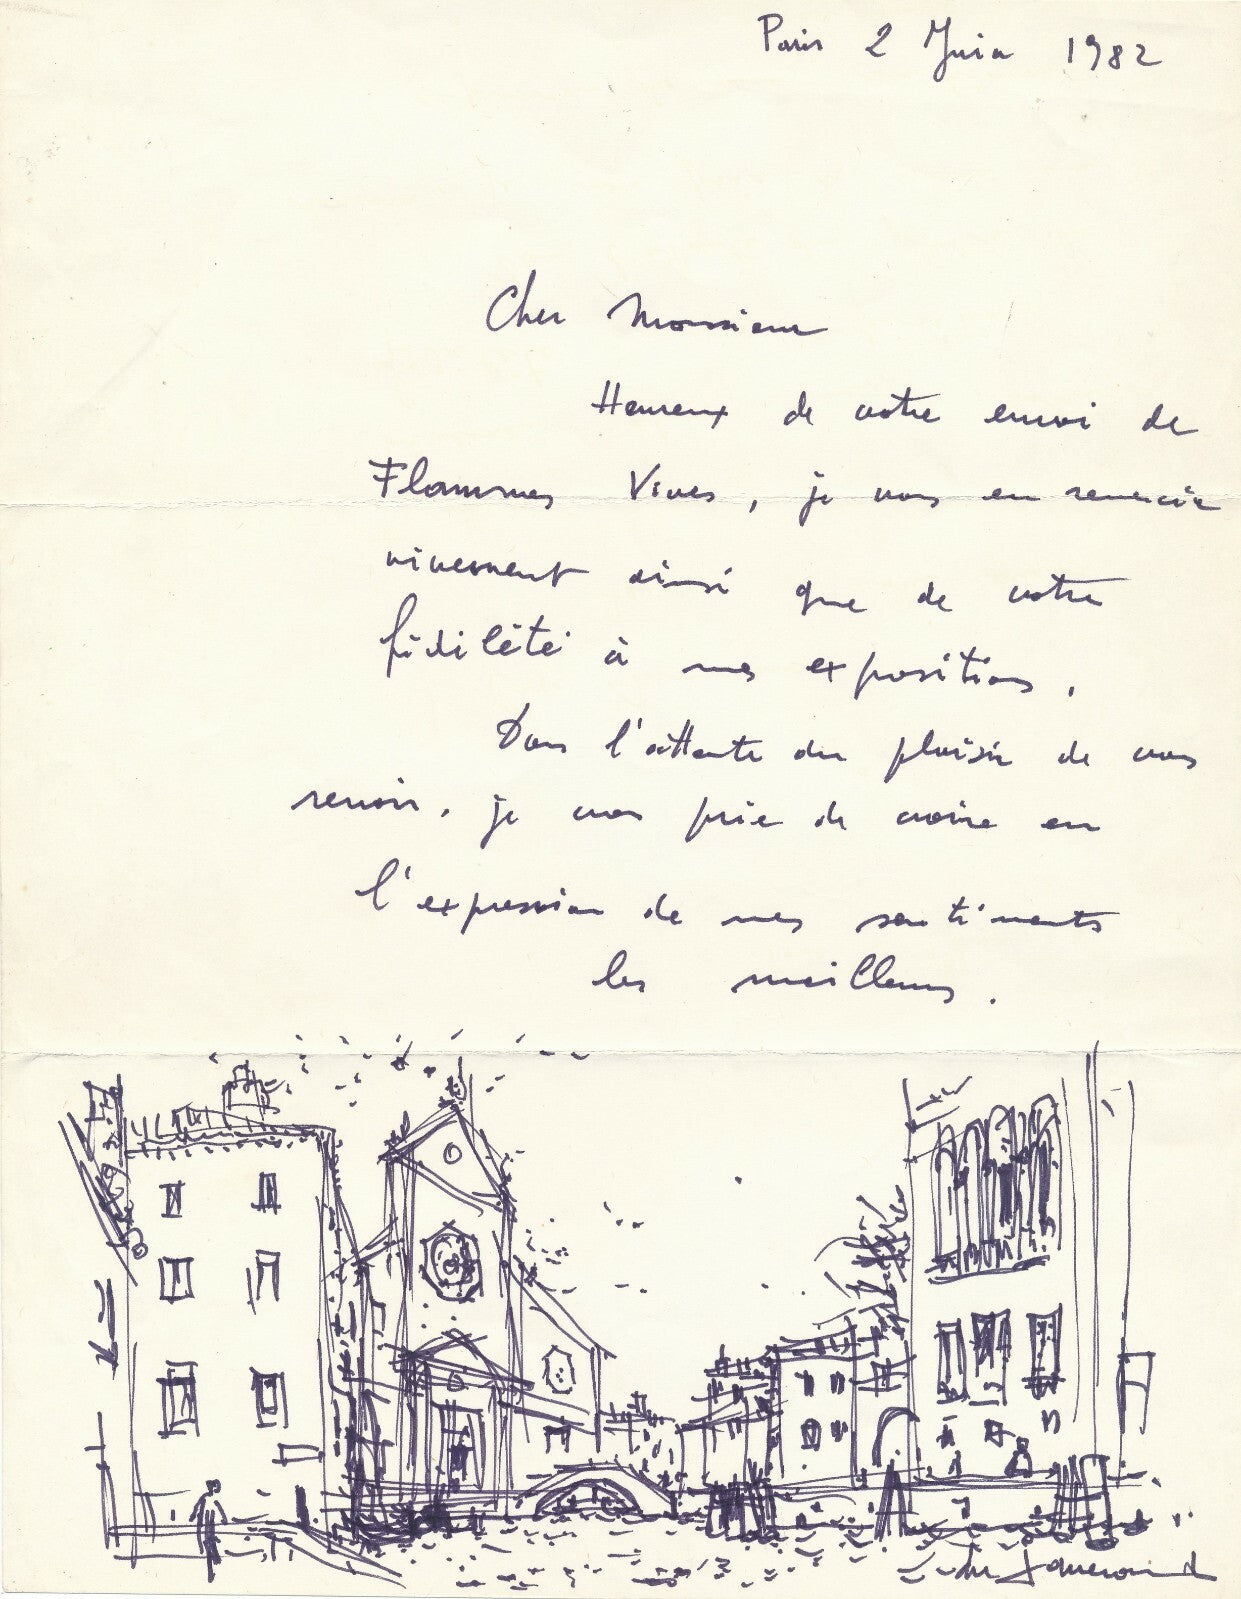 Paris 2 Juin 1982
Cher Monsieur
Heureux de votre envoi de
Flammes Vives, je vous en remercie
vivement ainsi que de votre
fidilété à mes expositions.
Dans l'attente du plaisir de vous
revoir, je vous prie de croire en
l'expression de mes sentiments
les meilleurs.